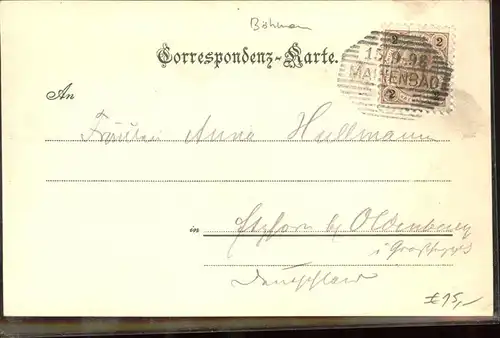 Böhmen
2 2
15.9.98
MARIENBAD
2
Correspondenz-Karte.
An
Fräulein Anna Hullmann
in Etzhorn b/ Oldenburg
i/
Deutschland
15,-